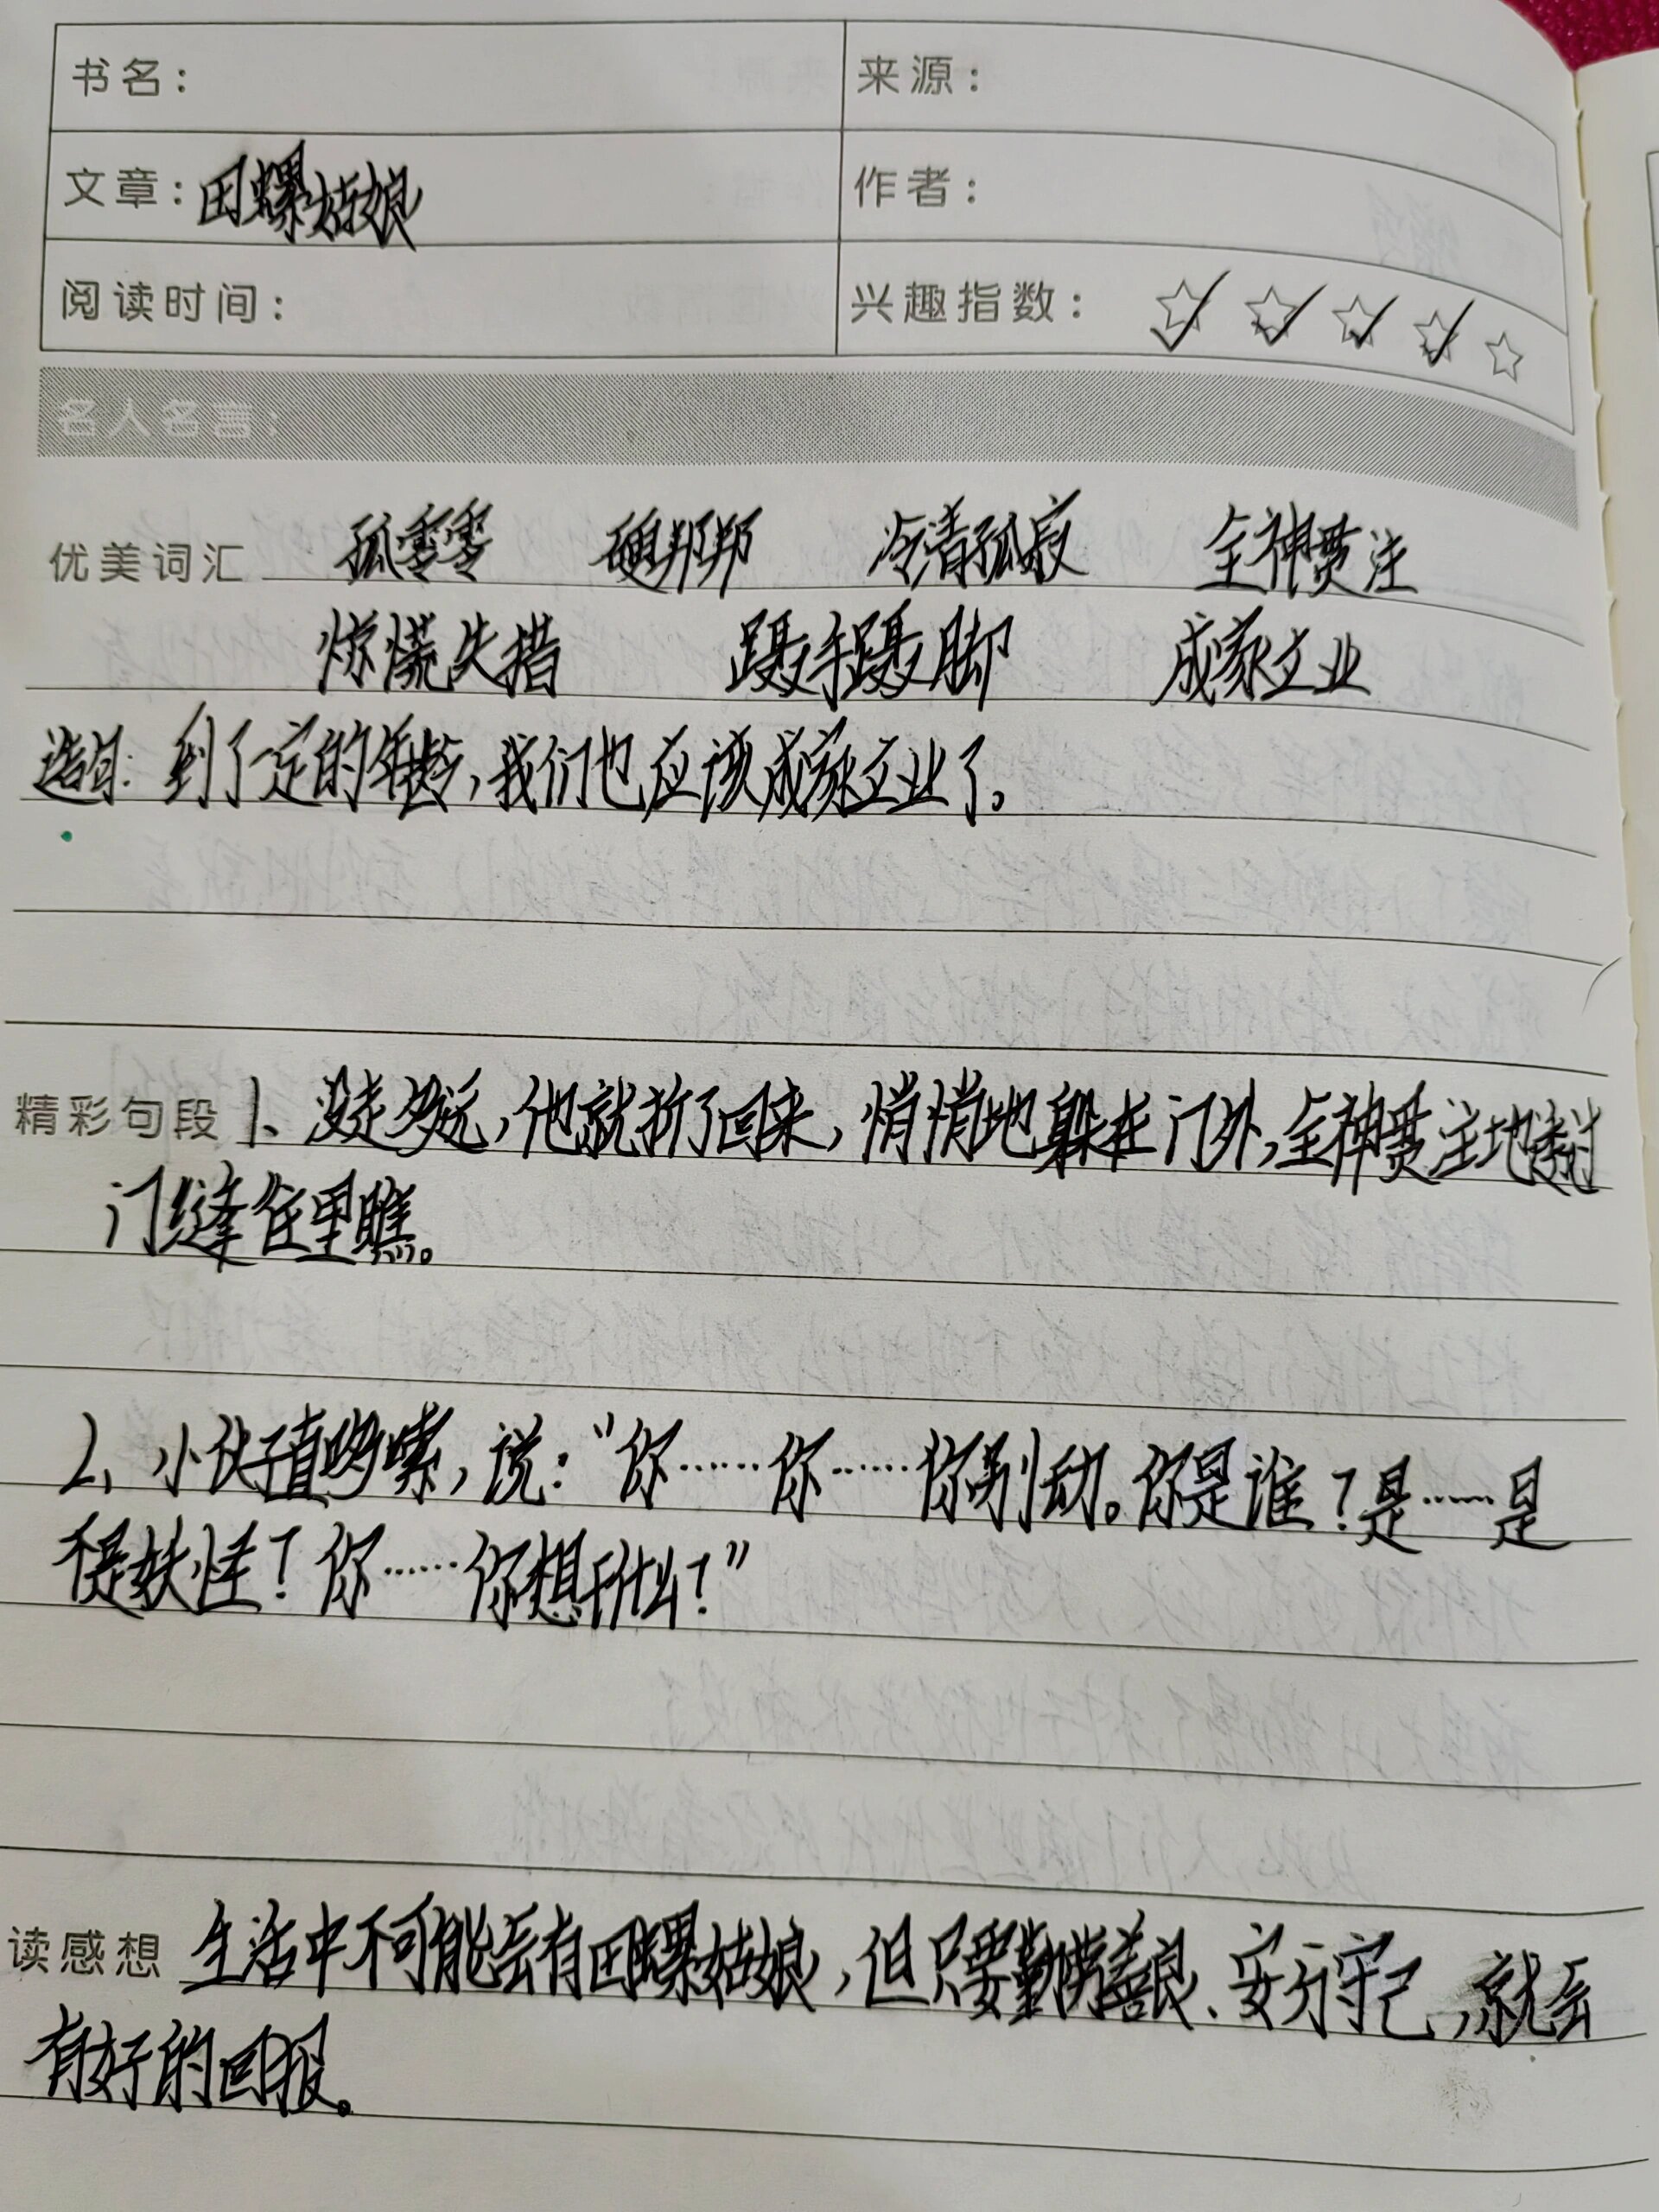 书名：
来源：
文章：田螺姑娘
作者：
阅读时间：
兴趣指数：
名人名言：
优美词汇 孤零零 硬邦邦 冷清孤寂 全神贯注
惊慌失措 蹑手蹑脚 成家立业
造句：到了一定的年龄，我们也应该成家立业了。
精彩句段 1、没走多远，他就折了回来，悄悄地躲在门外，全神贯注地透过
门缝往里瞧。
2、小伙子直哆嗦，说：“你……你……你别动。你是谁？是……是
不是妖怪？你……你想干什么？”
读感想 生活中不可能会有田螺姑娘，但只要勤劳善良、安分守己，就会
有好的回报。